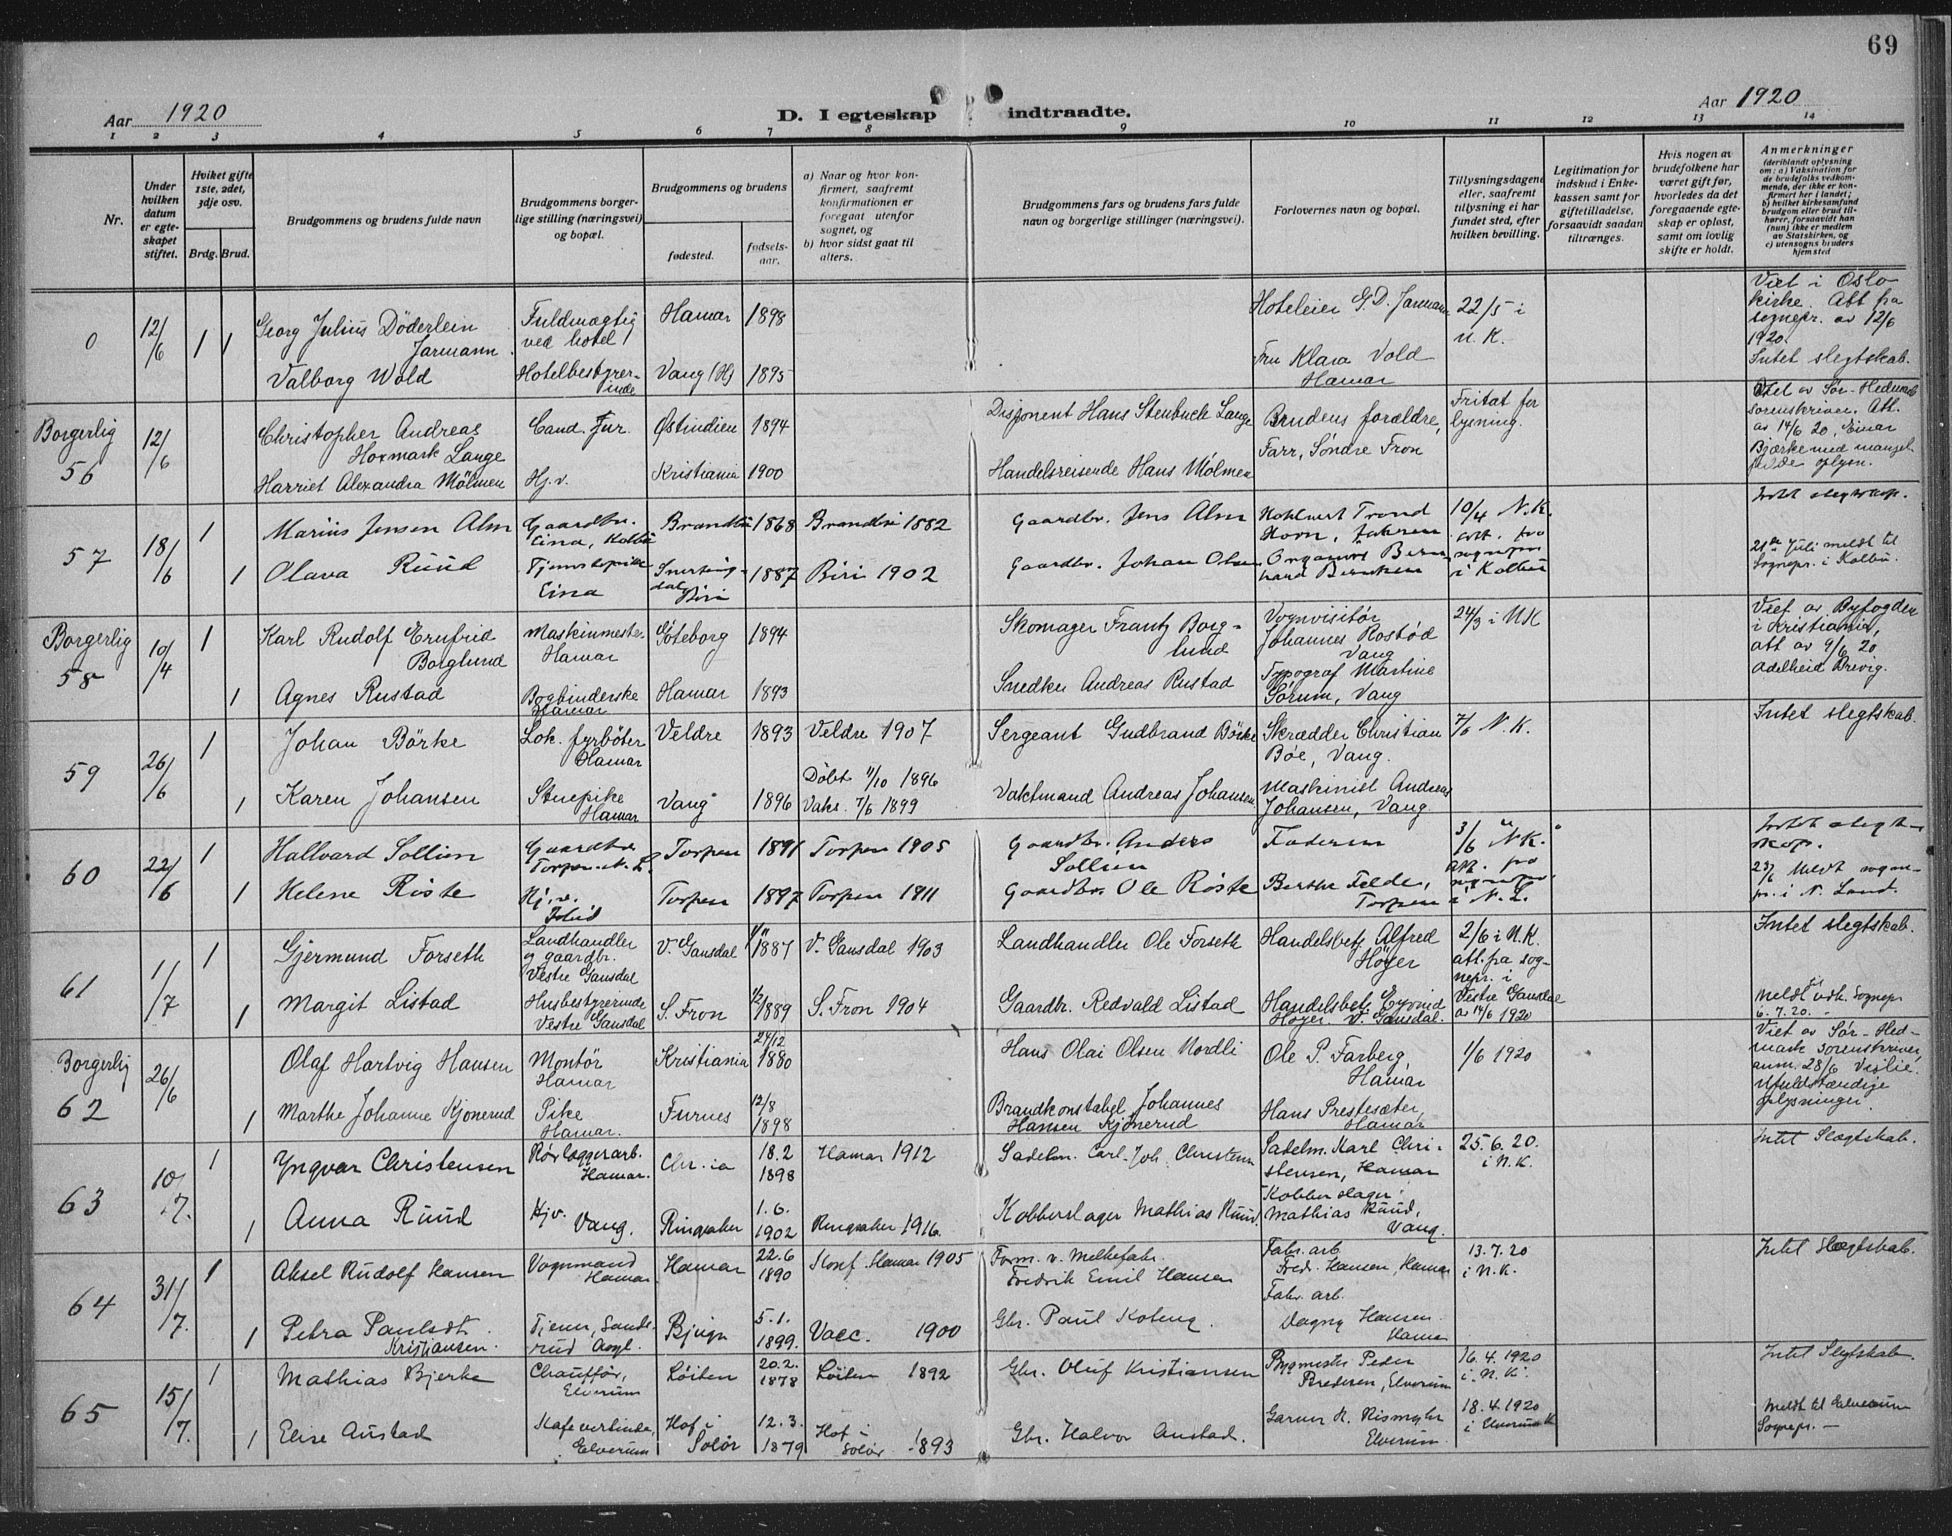 69
Aar 1920
D. I egteskap indtraadte.
Aar 1920
1 2 3 4 5 6 7 8 9 10 11 12 13 14
Nr.
Under hvilken datum er egteskapet stiftet.
Hvilket gifte 1ste, 2det, 3dje osv.
Brdg. Brud.
Brudgommens og brudens fulde navn
Brudgommens borgerlige stilling (næringsvei) og bopæl.
Brudgommens og brudens
fødested.
fødselsaar.
a) Naar og hvor konfirmert, saafremt konfirmationen er foregaat utenfor sognet, og
b) hvor sidst gaat til alters.
Brudgommens fars og brudens fars fulde navn og borgerlige stillinger (næringsvei).
Forlovernes navn og bopæl.
Tillysningsdagene eller, saafremt tillysning ei har fundet sted, efter hvilken bevilling.
Legitimation for indskud i Enkekassen samt for giftetilladelse, forsaavidt saadan tiltrænges.
Hvis nogen av brudefolkene har været gift før, hvorledes da det foregaaende egteskap er opløst, samt om lovlig skifte er holdt.
Anmerkninger
(deriblandt oplysning om: a) Vaksination for de brudefolks vedkommende, der ikke er konfirmert her i landet; b) hvilket kirkesamfund brudgom eller brud tilhører, forsaavidt han (hun) ikke er medlem av Statskirken, og c) utensogns bruders hjemsted
0
12/6
1 1
Georg Julius Döderlein Jarmann
Fuldmægtig ved hotel
Hamar 1898
Hoteleier G.D. Jarmann
22/5 i N.K.
Viet i Oslo kirke. Att fra sognepr. av 12/6 1920.
Valborg Wold
Hotelbestyrerinde
Vang (H) 1895
Fru Klara Vold Hamar
Intet slegtskab.
Borgerlig 56
12/6
Christopher Andreas Hoxmark Lange
Cand. Jur.
Østindien 1894
Disponent Hans Stenbuck Lange
Brudens forældre, Farr, Søndre Fron
Fritat for lysning.
Viet av Sør-Hedmark sorenskriver. Att. av 14/6 20, Einar Bjerke med mangelfulde oplysn.
Harriet Alexandra Mølmen
Hj.v.
Kristiania 1900
Handelsreisende Hans Mølmen
57
18/6
1
Marius Jensen Alm
Gaardbr. Eina, Kolbu
Brandbu 1868
Brandbu 1882
Gaardbr. Jens Alm
10/4 N.K. att. fra sognepr. i Kolbu
Intet slegtskap.
1
Olava Ruud
Eina
Biri 1887
Biri 1902
Gaardbr. Johan Olsen
21de Juli meldt til Sognepr. i Kolbu.
Borgerlig 58
10/4
1
Karl Rudolf Ernfrid Borglund
Maskinmester Hamar
Göteborg 1894
Skomager Frantz Borglund
Vognvisitør Johannes Rostød Vang
24/3 i N.K
Viet av Byfogden i Kristiania, att av 9/6 20 Adelheid Brevig.
1
Agnes Rustad
Bogbinderske Hamar
Hamar 1893
Snedker Andreas Rustad
Typograf Martine Sørum, Vang
59
26/6
1
Johan Börke
Lok. fyrbøter Hamar
Veldre 1893
Veldre 1907
Sergeant Gudbrand Börke
Skrædder Christian Bøe, Vang.
7/6 N.K.
Intet slegtskab.
1
Karen Johansen
Stuepike Hamar
Vang 1896
Døbt 11/10 1896
Vaks. 7/6 1899
Vaktmand Andreas Johansen
Maskinist Andreas Johansen, Vang.
60
22/6
1
Hallvard Sollien
Gaardbr. Torpen. N. L.
Torpen 1891
Torpen 1905
Gaardbr. Anders Sollien
Faderen
3/6 N.K. att. fra sognepr. i N. L.
Intet slegtskap.
1
Helene Röste
Hj.v.
Torpen 1897
Torpen 1911
Gaardbr. Ole Röste
Torpen
23/6 Meldt sognepr. i N. Land.
61
1/7
1
Gjermund Forseth
Landhandler og gaardbr. Vestre Gausdal
V. Gausdal 1887
V. Gausdal 1903
Landhandler Ole Forseth
Handelsbetj. Alfred Høyer
2/6 i N.K. att. fra sognepr. i Vestre Gausdal av 14/6 1920
Intet slegtskab.
1
Margit Listad
Husbestyrerinde Vestre Gausdal
S. Fron 1889
S. Fron 1904
Gaardbr. Redvald Listad
Handelsbetj. Eyvind Høyer V. Gausdal.
Meldt til vedk. Sognepr. 6.7.20.
Borgerlig 62
26/6
Olaf Hartvig Hansen
Montör Hamar
Kristiania 24/12 1880
Hans Olai Olsen Nordli
Ole P. Farberg, Hamar
1/6 1920
Viet av Sør-Hedmark sorenskriver, anm. 28/6 Vislie. Ufuldstændige oplysninger.
1
Marthe Johanne Kjonerud
Pike Hamar.
Furnes 12/8 1898
Brandkonstabel Johannes Hansen Kjonerud
Hans Prestesæter, Hamar
63
10/7.
1
Yngvar Christensen
Rørlæggerarb. Hamar.
Chr.ia 18.2 1898
Hamar 1912
Sadelm. Carl Joh. Christensen
Sadelm. Karl Christensen, Hamar
25.6.20. i N.K.
Intet Slegtskab.
1
Anna Ruud
Hjv. Vang.
Ringsaker 1.6. 1902
Ringsaker 1916.
Kobberslager Mathias Ruud,
Kobberslager Mathias Ruud, Vang.
64
31/7.
1
Aksel Rudolf Hansen
Vognmand Hamar
Hamar 22.6 1890
Konf. Hamar 1905
Form. v. Melkefabr. Fredrik Emil Hansen
Fabr. arb. Fredr. Hansen, Hamar
13.7.20 i N.K.
Intet Slegtskab.
1
Petra Paulsdt. Kristiansen.
Tjener, Sanderud Asyl.
Bjugn 5.1. 1899.
Vacc. 1900
Gbr. Paul Koteng
Fabr. arb. Dagny Hansen Hamar
65
15/7.
1
Mathias Bjerke
Chauffør, Elverum
Løiten 20.2. 1878
Løiten 1892
Gbr. Oluf Kristiansen
Bygmester Peder Pedersen, Elverum
16.4.1920 i N.K.
Intet Slegtskab.
1
Elise Austad
Kafevertinde, Elverum
Hof i Solør 12.3. 1879
Hof i Solør 1893
Gbr. Halvor Austad.
Elverum.
18.4.1920 i Elverum K
Meldt til Elverum Sognepr.